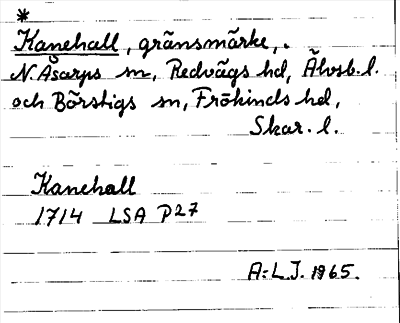 *
Kanehall, gränsmärke,.
N. Åsarps sn, Redvägs hd, Älvsb. l.
och Börstigs sn, Frökinds hd,
Skar. l.
Kanehall
1714 LSA P27
A.-L.J. 1965.